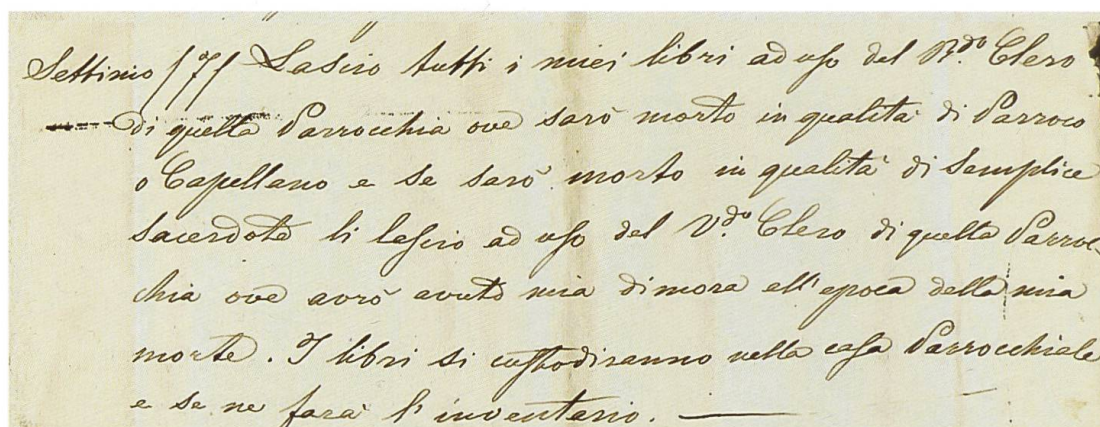 Settimo /7/ Lascio tutti i miei libri ad uso del R.do Clero
di quella Parrocchia ove sarò morto in qualità di Parroco
o Capellano e se sarò morto in qualità di semplice
sacerdote li lascio ad uso del V.do Clero di quella Parroc-
chia ove avrò avuto mia dimora all'epoca della mia
morte. I libri si custodiranno nella casa Parrocchiale
e se ne farà l'inventario.